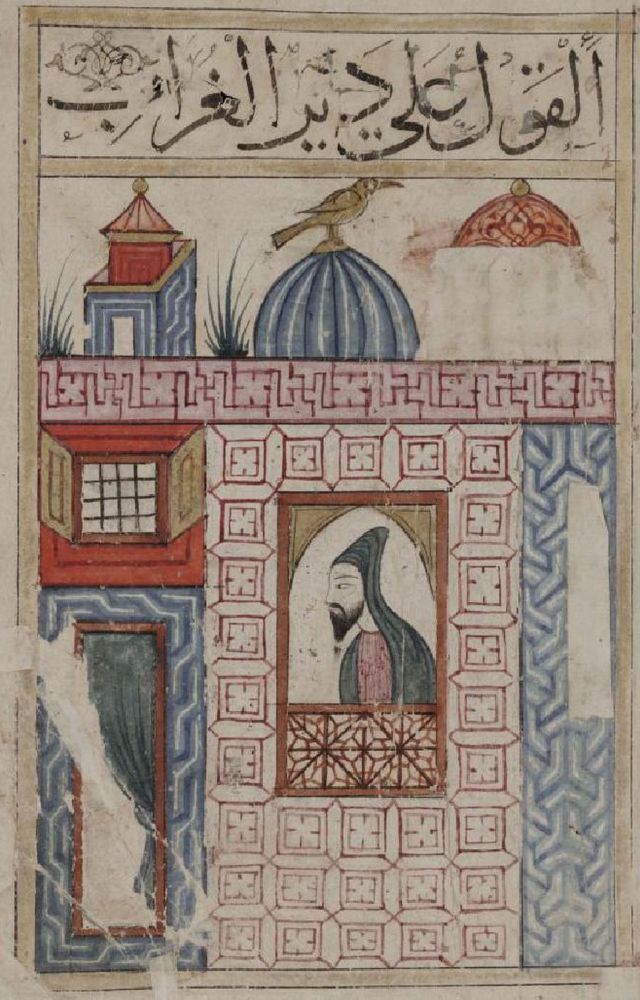 القول على دير الغرائب